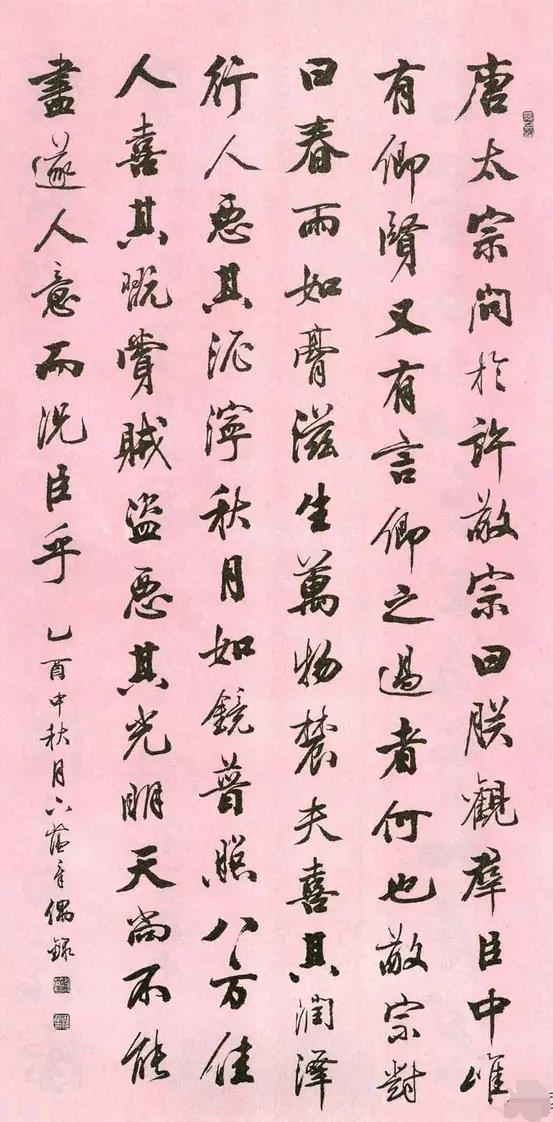 唐太宗問於許敬宗曰朕觀羣臣中唯
有卿賢又有言卿之過者何也敬宗對
曰春雨如膏滋生萬物農夫喜其潤澤
行人惡其泥濘秋月如鏡普照八方佳
人喜其玩賞賊盜惡其光明天尚不能
盡遂人意而況臣乎
乙酉中秋月偶錄